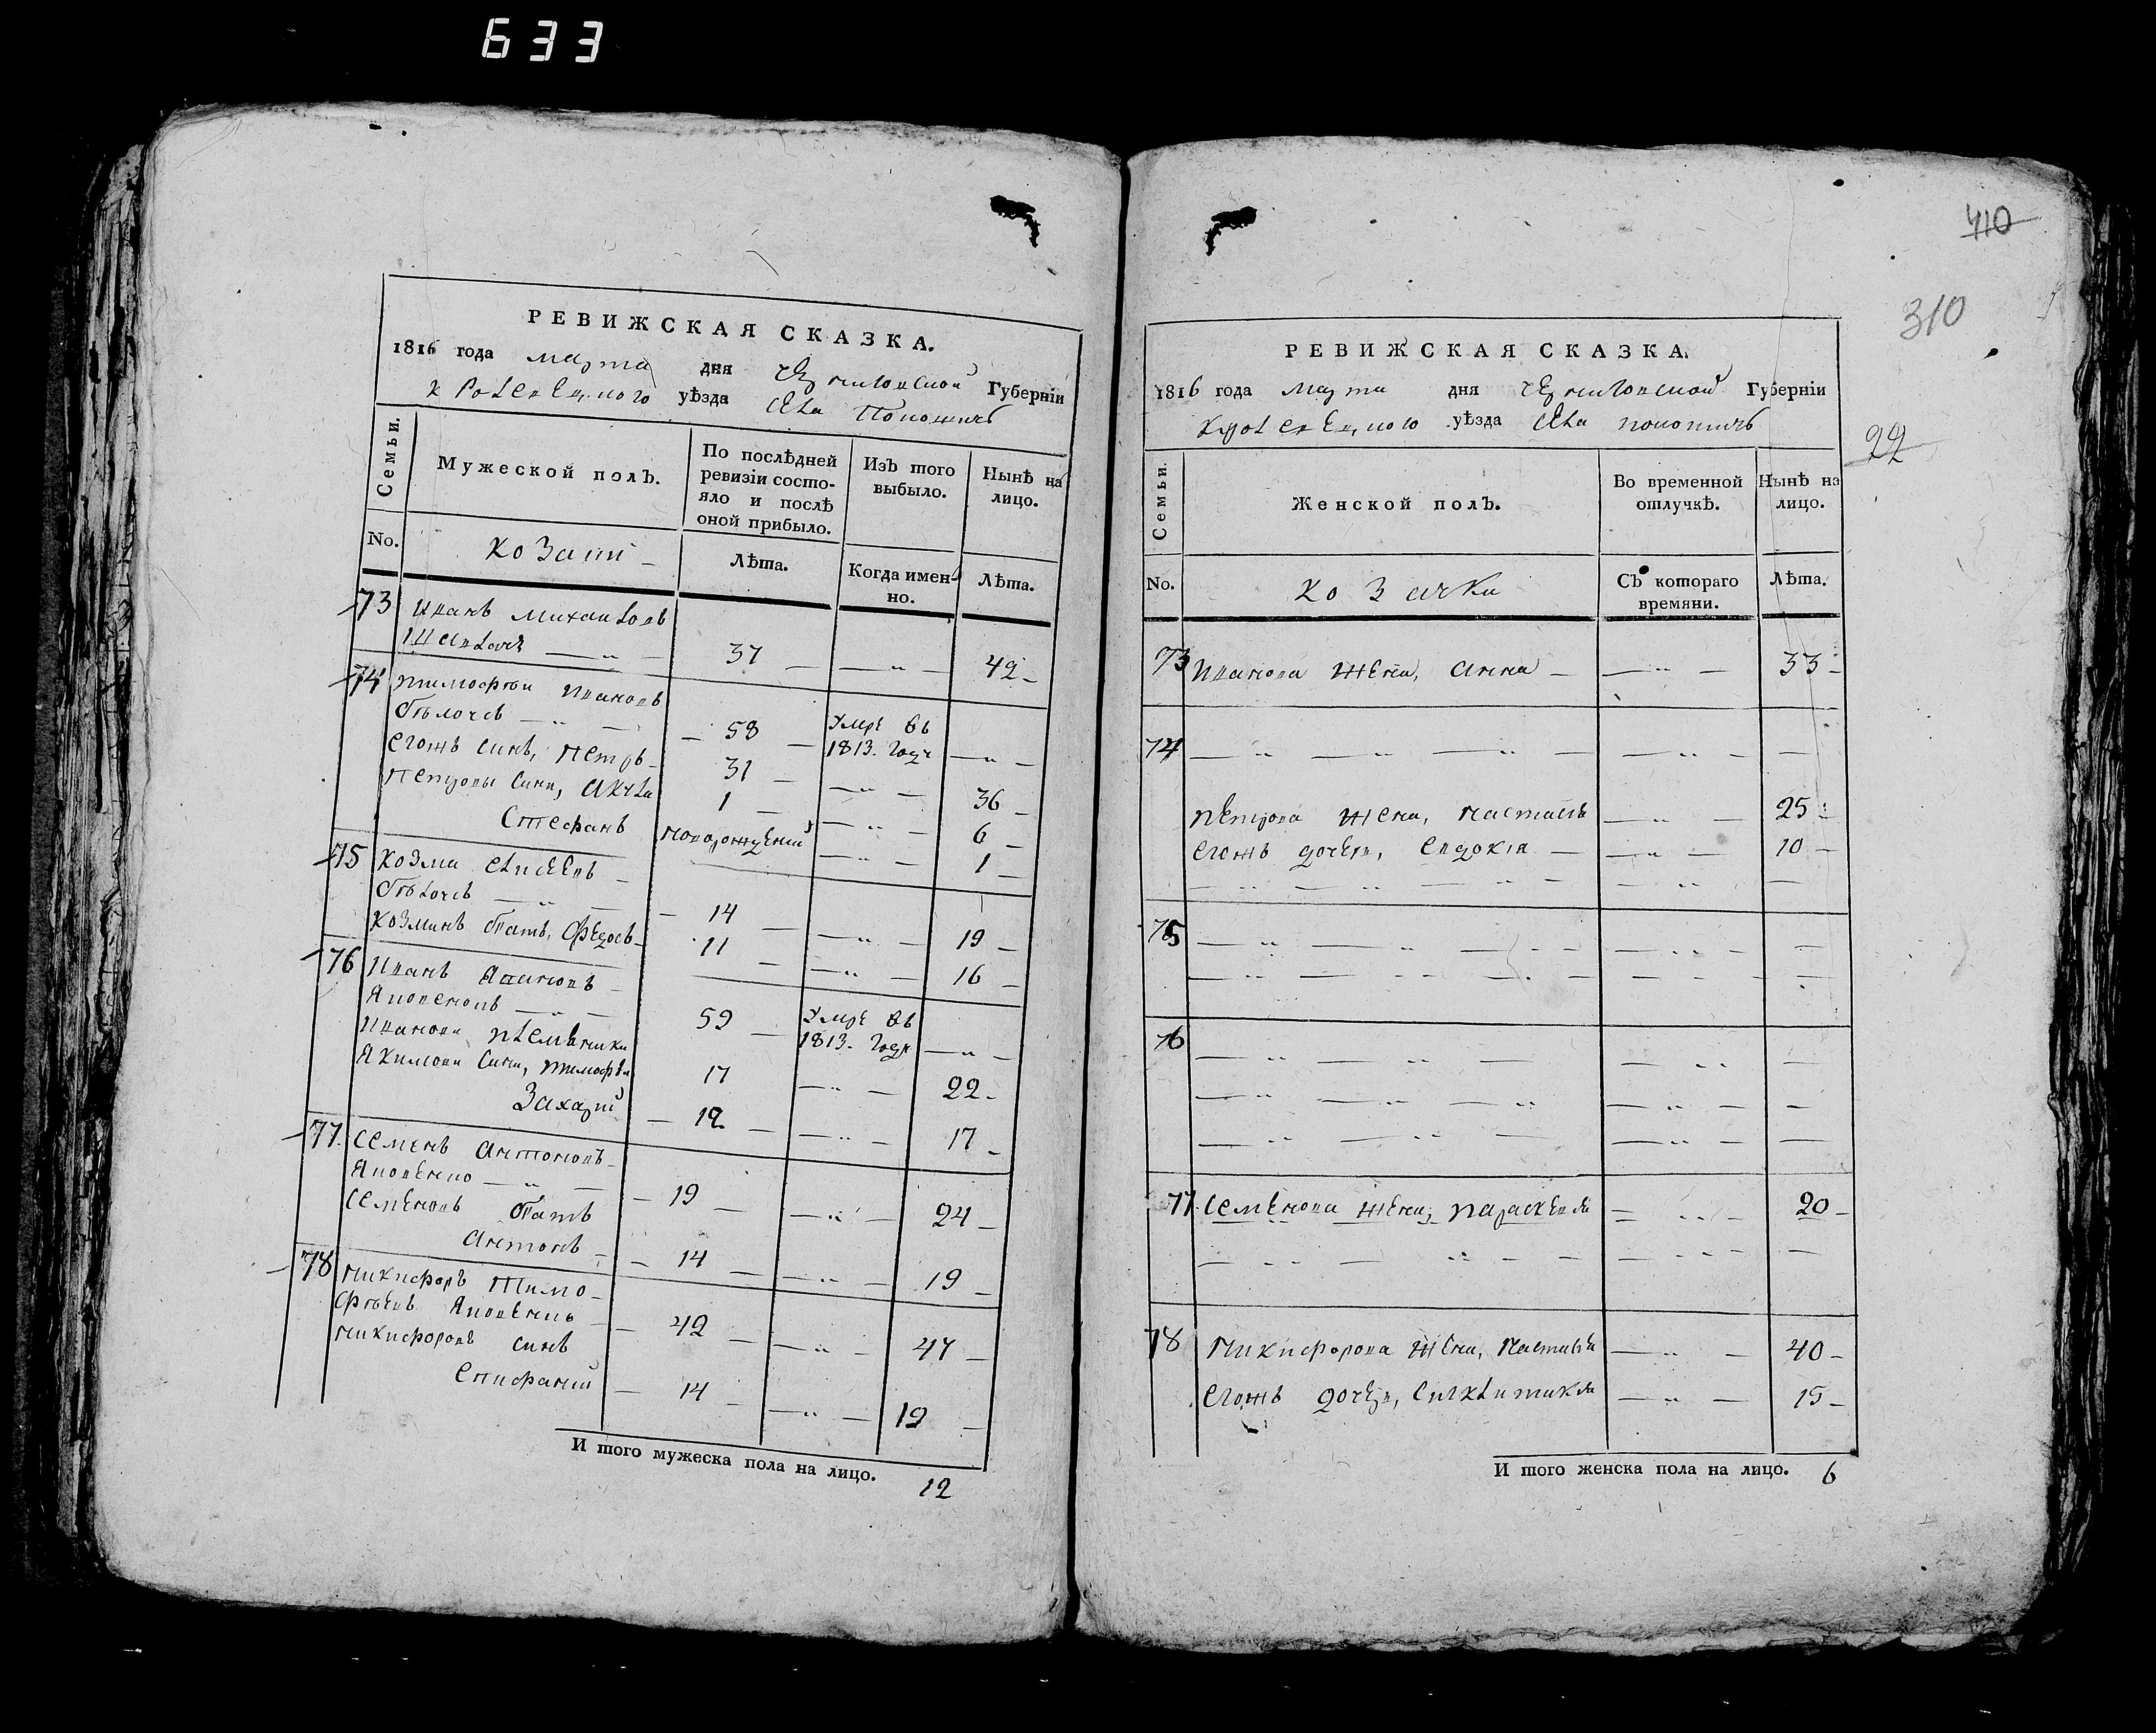 633
РЕВИЖСКАЯ СКАЗКА.
1816 года марта дня черниговской Губерніи
кролевецкого уѣзда села Пономичъ
Семьи.
Мужеской полъ.
По послѣдней ревизіи состояло и послѣ оной прибыло.
Изъ того выбыло.
Нынѣ на лицо.
No.
козаки
Лѣта.
Когда именно.
Лѣта.
73 Иванъ Михаиловъ
37 42
74 тимофѣи ивановъ
58 Умре въ 1813. году
егожъ синъ, петръ 31 36
петровы сини, 1 6
Стефанъ новорожденій 1
75 козма елисеевъ
14 19
козминъ братъ, Федоръ 11 16
76 Иванъ
Яковенко 59 Умре въ 1813. году
иванови племѣнники
Якимови сини, тимофѣи 17 22
Захарій 12 17
77 Семенъ антоновъ
Яковенко 19 24
Семеновъ братъ
антонъ 14 19
78 никифоръ тимо-
фѣевъ Яковенко 42 47
никифоровъ синъ
епифаній 14 19
И того мужеска пола на лицо. 12
410
310
22
РЕВИЖСКАЯ СКАЗКА.
1816 года марта дня черниговской Губерніи
кролевецкого уѣзда села пономичъ
Семьи.
Женской полъ.
Во временной отлучкѣ.
Нынѣ на лицо.
No.
козачки
Съ котораго времяни.
Лѣта.
73 иванова жена, анна 33
74
петрова жена, настасія 25
егожъ дочери, евдокія 10
75
76
77 семенова жена, параскевия 20
78 никифорова жена, настасія 40
егожъ дочери, синклитикия 15
И того женска пола на лицо. 6